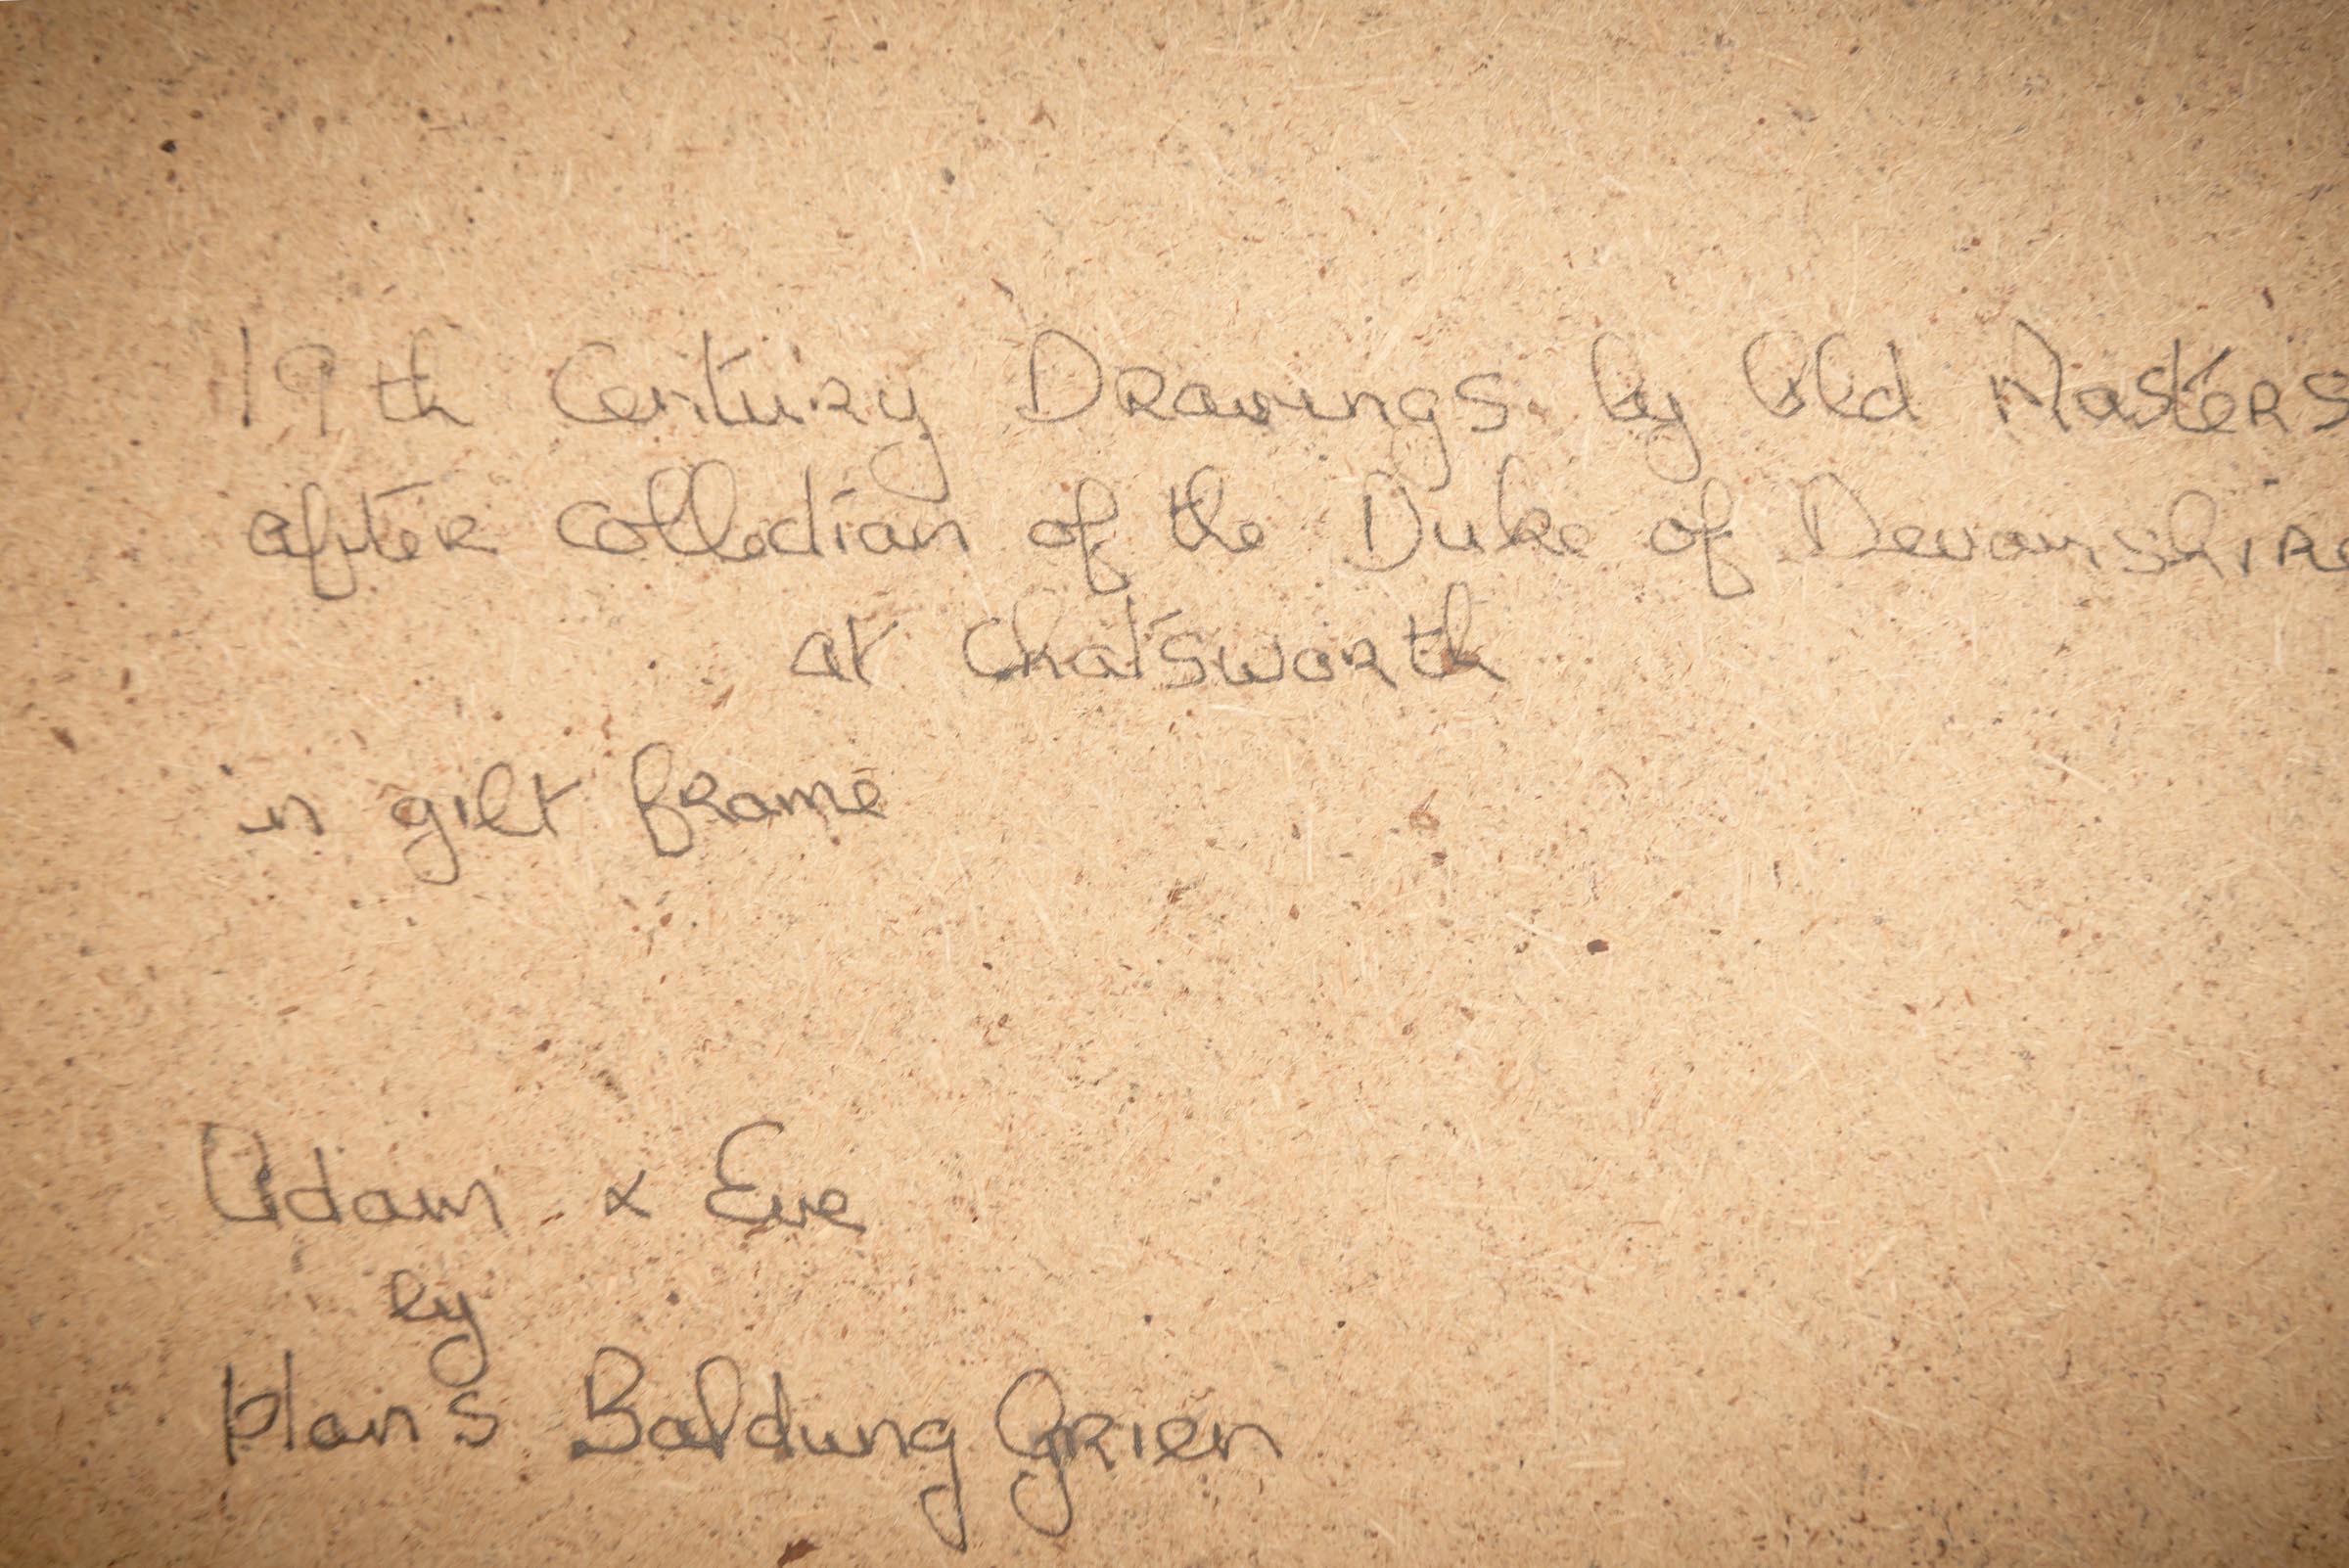 19th Century Drawings by Old Masters
after collection of the Duke of Devonshire
at Chatsworth
in gilt frame
Adam & Eve
by
Hans Baldung Grien